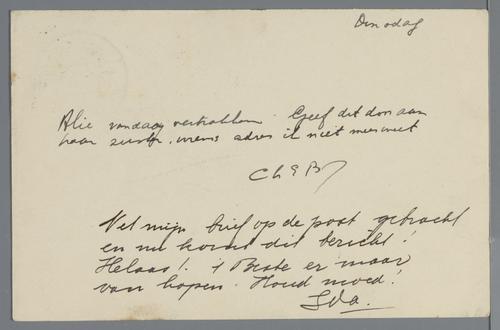 Dinsdag
Alie vandaag vertrokken. Geef dit don aan
haar zuster, wiens adres ik niet meer weet
Ch E B
Net mijn brief op de post gebracht
en nu komt dit bericht!
Helaas! 't Beste er maar
van hopen. Houd moed!
Ida.